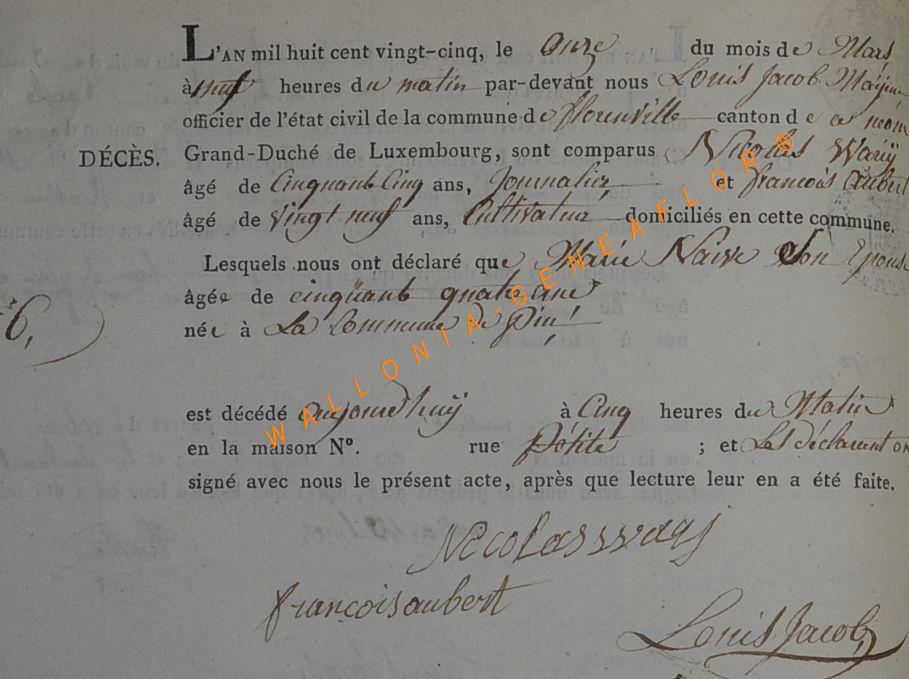 L'AN mil huit cent vingt-cinq, le onze du mois de Mars
à neuf heures du matin par-devant nous Louis Jacob
officier de l'état civil de la commune de florenville canton de ce nom
DÉCÈS. Grand-Duché de Luxembourg, sont comparus Nicolas
âgé de Cinquante Cinq ans, Journalier et françois aubert
âgé de vingt neuf ans, Cultivateur domiciliés en cette commune.
Lesquels nous ont déclaré que Marie Son Epouse
âgée de cinquante quatre ans
6, née à La Commune de
est décédé aujourdhuÿ à Cinq heures du Matin
en la maison N°. rue petite ; et Les déclarent on
signé avec nous le présent acte, après que lecture leur en a été faite.
françois aubert
Louis Jacob
WALLONIA-GENEAFLOR®